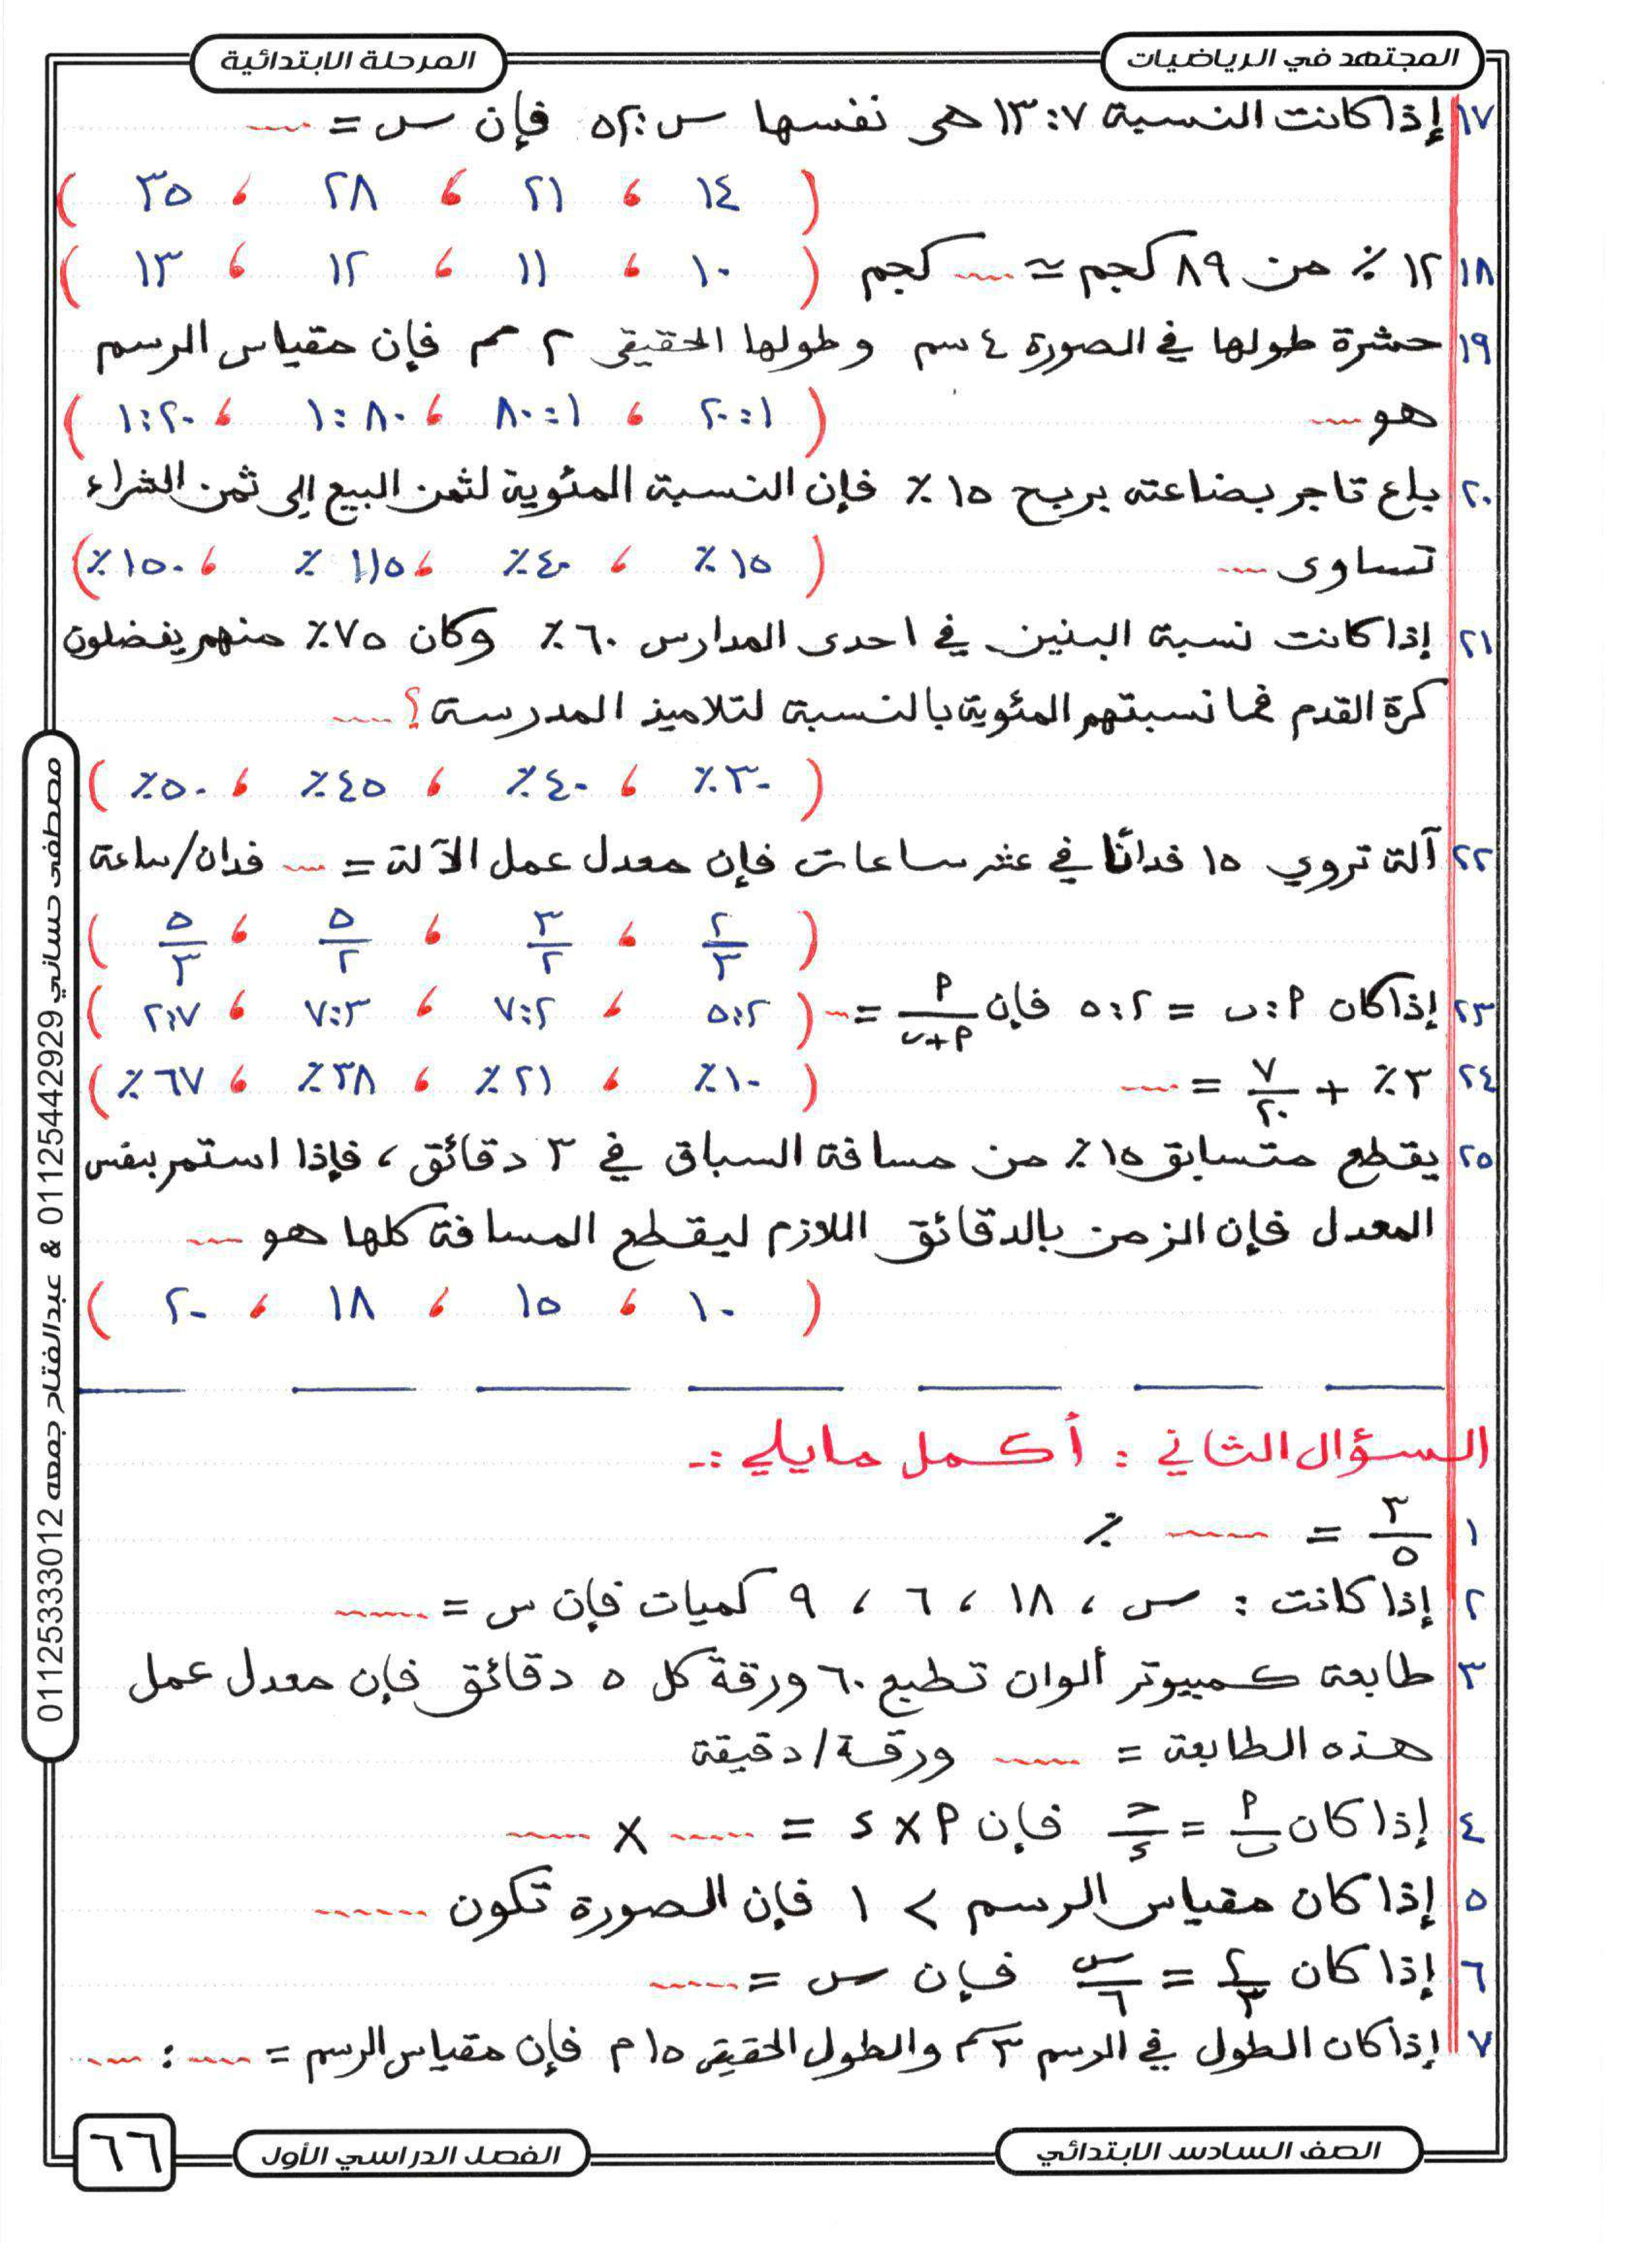 المجتهد في الرياضيات
المرحلة الابتدائية
١٧ إذا كانت النسبة ٧ : ١٣ هي نفسها س : ٥٢ فإن س = ....
( ١٤ ، ٢١ ، ٢٨ ، ٣٥ )
١٨ ١٢ ٪ من ٨٩ كجم ≃ .... كجم ( ١٠ ، ١١ ، ١٢ ، ١٣ )
١٩ حشرة طولها في الصورة ٤ سم وطولها الحقيقي ٢ مم فإن مقياس الرسم
هو .... ( ١ : ٢٠ ، ١ : ٨٠ ، ٨٠ : ١ ، ٢٠ : ١ )
٢٠ باع تاجر بضاعته بربح ١٥ ٪ فإن النسبة المئوية لثمن البيع إلى ثمن الشراء
تساوى .... ( ١٥ ٪ ، ٤٠ ٪ ، ١١٥ ٪ ، ١٥٠ ٪ )
٢١ إذا كانت نسبة البنين في احدى المدارس ٦٠ ٪ وكان ٧٥ ٪ منهم يفضلون
كرة القدم فما نسبتهم المئوية بالنسبة لتلاميذ المدرسة ؟ ....
( ٣٠ ٪ ، ٤٠ ٪ ، ٤٥ ٪ ، ٥٠ ٪ )
٢٢ آلة تروي ١٥ فدانًا في عشر ساعات فإن معدل عمل الآلة = .... فدان/ساعة
( ٢/٣ ، ٣/٢ ، ٥/٢ ، ٥/٣ )
٢٣ إذا كان م : ب = ٢ : ٥ فإن م/(م+ب) = .... ( ٢ : ٥ ، ٢ : ٧ ، ٣ : ٧ ، ٧ : ٢ )
٢٤ ٣ ٪ + ٧/٢٠ = .... ( ١٠ ٪ ، ٢١ ٪ ، ٣٨ ٪ ، ٦٧ ٪ )
٢٥ يقطع متسابق ١٥ ٪ من مسافة السباق في ٣ دقائق ، فإذا استمر بنفس
المعدل فإن الزمن بالدقائق اللازم ليقطع المسافة كلها هو ....
( ١٠ ، ١٥ ، ١٨ ، ٢٠ )
السؤال الثاني : أكمل مايلي :-
١ ٣/٥ = .... ٪
٢ إذا كانت : س ، ١٨ ، ٦ ، ٩ كميات فإن س = ....
٣ طابعة كمبيوتر ألوان تطبع ٦٠ ورقة كل ٥ دقائق فإن معدل عمل
هذه الطابعة = .... ورقة / دقيقة
٤ إذا كان م/ب = ح/د فإن م × د = .... × ....
٥ إذا كان مقياس الرسم > ١ فإن الصورة تكون ....
٦ إذا كان ٢/٣ = س/٦ فإن س = ....
٧ إذا كان الطول في الرسم ٣سم والطول الحقيقي ١٥م فإن مقياس الرسم = .... : ....
مصطفى حساني 01125442929 & عبدالفتاح جمعه 01125333012
الصف السادس الابتدائي
الفصل الدراسي الأول
٦٦